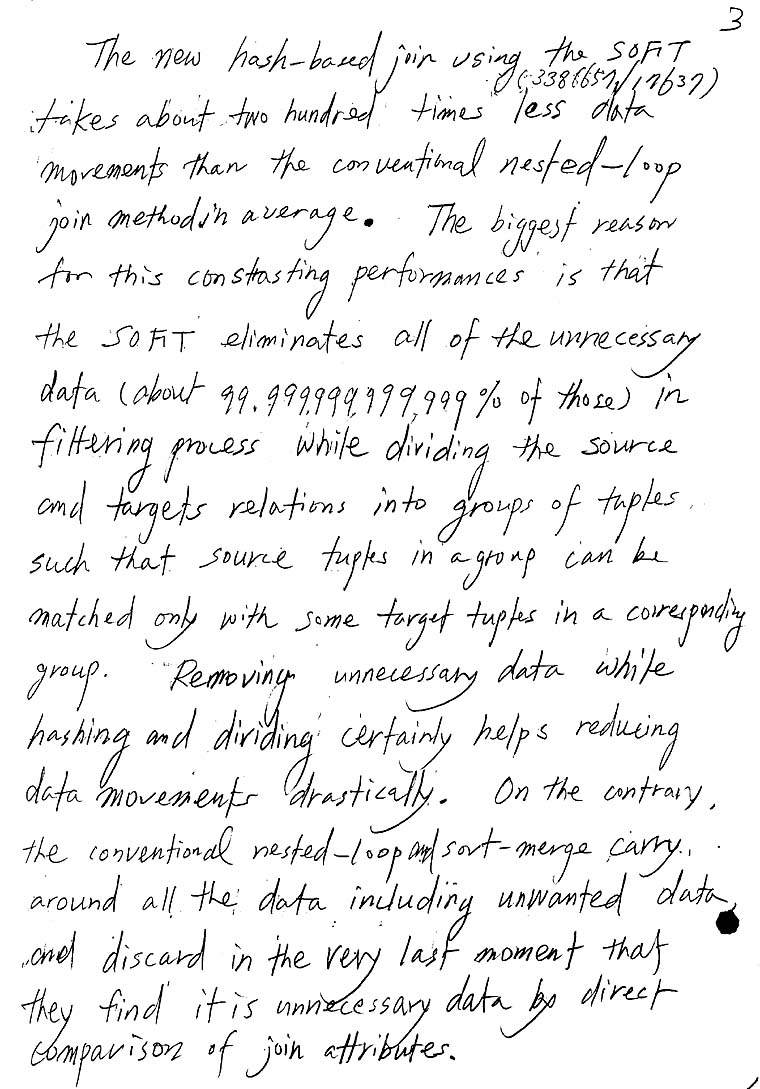 3
The new hash-based join using the SOFIT
(3386657/17637)
takes about two hundred times less data
movements than the conventional nested-loop
join method in average. The biggest reason
for this constasting performances is that
the SOFIT eliminates all of the unnecessary
data (about 99.999,999,999,999% of those) in
filtering process while dividing the source
and targets relations into groups of tuples
such that source tuples in a group can be
matched only with some target tuples in a corresponding
group. Removing unnecessary data while
hashing and dividing certainly helps reducing
data movements drastically. On the contrary,
the conventional nested-loop and sort-merge carry
around all the data including unwanted data,
and discard in the very last moment that
they find it is unnecessary data by direct
comparison of join attributes.